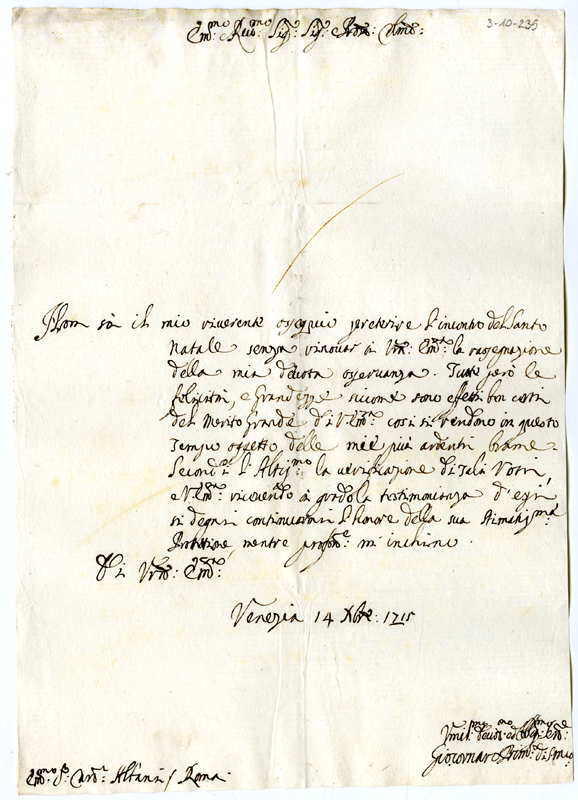 3-10-235
Em:mo e Reu:mo Sig:r Sig:r Pron: Olmo:
Non sà il mio riuerente ossequio preterire l'incontro del Santo
Natale senza rinouar à Vra: Em:za la rassegnazione
della mia deuota osseruanza. Tutte però le
felicità, e Grandezze siccome sono effetti ben certi
del Merito Grande di V: Em:za così si rendono in questo
tempo oggetto delle mie più ardenti brame.
Secondi l'Altiss:mo la uerificazione di tali Voti,
e V: Em:za riceuendo à grado la testimonianza d'essi
si degni continuarmi l'honore della sua stimatiss:ma
Protettione, mentre profon:te m'inchino.
Di Vra: Em:za
Venezia 14 Xbre: 1715
Vmil:mo deuot:mo ed
Em:mo S:r Card:l Altani / Roma.